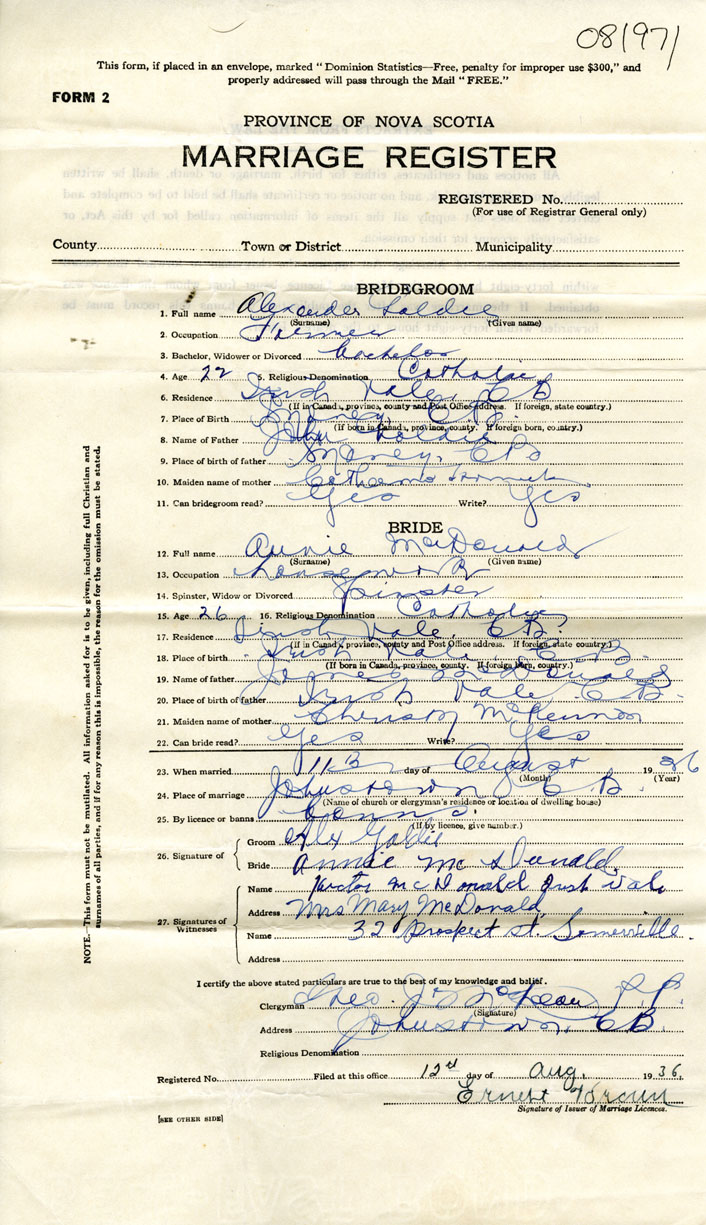 08197
This form, if placed in an envelope, marked "Dominion Statistics—Free, penalty for improper use $300," and
properly addressed will pass through the Mail "FREE."
FORM 2
PROVINCE OF NOVA SCOTIA
MARRIAGE REGISTER
REGISTERED No.
(For use of Registrar General only)
County Town or District Municipality
BRIDEGROOM
1. Full name Alexander Goldie
(Surname) (Given name)
2. Occupation Farmer
3. Bachelor, Widower or Divorced bachelor
4. Age 22 5. Religious Denomination Catholic
6. Residence Irish Vale, C B
(If in Canada, province, county and Post Office address. If foreign, state country.)
7. Place of Birth Sydney C B
(If born in Canada, province, county. If foreign born, country.)
8. Name of Father John Goldie
9. Place of birth of father Sydney, C B
10. Maiden name of mother
11. Can bridegroom read? Yes Write? Yes
BRIDE
12. Full name Annie McDonald
(Surname) (Given name)
13. Occupation housework
14. Spinster, Widow or Divorced Spinster
15. Age 26 16. Religious Denomination Catholic
17. Residence Irish Vale, C B.
(If in Canada, province, county and Post Office address. If foreign, state country.)
18. Place of birth Irish Vale, C B.
(If born in Canada, province, county. If foreign born, country.)
19. Name of father James McDonald
20. Place of birth of father Irish Vale C B.
21. Maiden name of mother Christy McKennon
22. Can bride read? Yes Write? Yes
23. When married 11th day of August 1936
(Month) (Year)
24. Place of marriage Johnstown C B.
(Name of church or clergyman's residence or location of dwelling house)
25. By licence or banns banns
(If by licence, give number.)
26. Signature of
Groom Alex Goldie
Bride Annie McDonald
27. Signatures of Witnesses
Name Hector McDonald Irish Vale
Address Mrs Mary McDonald
Name 32 Prospect St. Somerville.
Address
I certify the above stated particulars are true to the best of my knowledge and belief.
Clergyman P.P.
(Signature)
Address Johnstown, C B.
Religious Denomination
Registered No. Filed at this office 12th day of Aug. 1936.
Ernest Brown
Signature of Issuer of Marriage Licences.
[SEE OTHER SIDE]
NOTE.—This form must not be mutilated. All information asked for is to be given, including full Christian and
surnames of all parties, and if for any reason this is impossible, the reason for the omission must be stated.